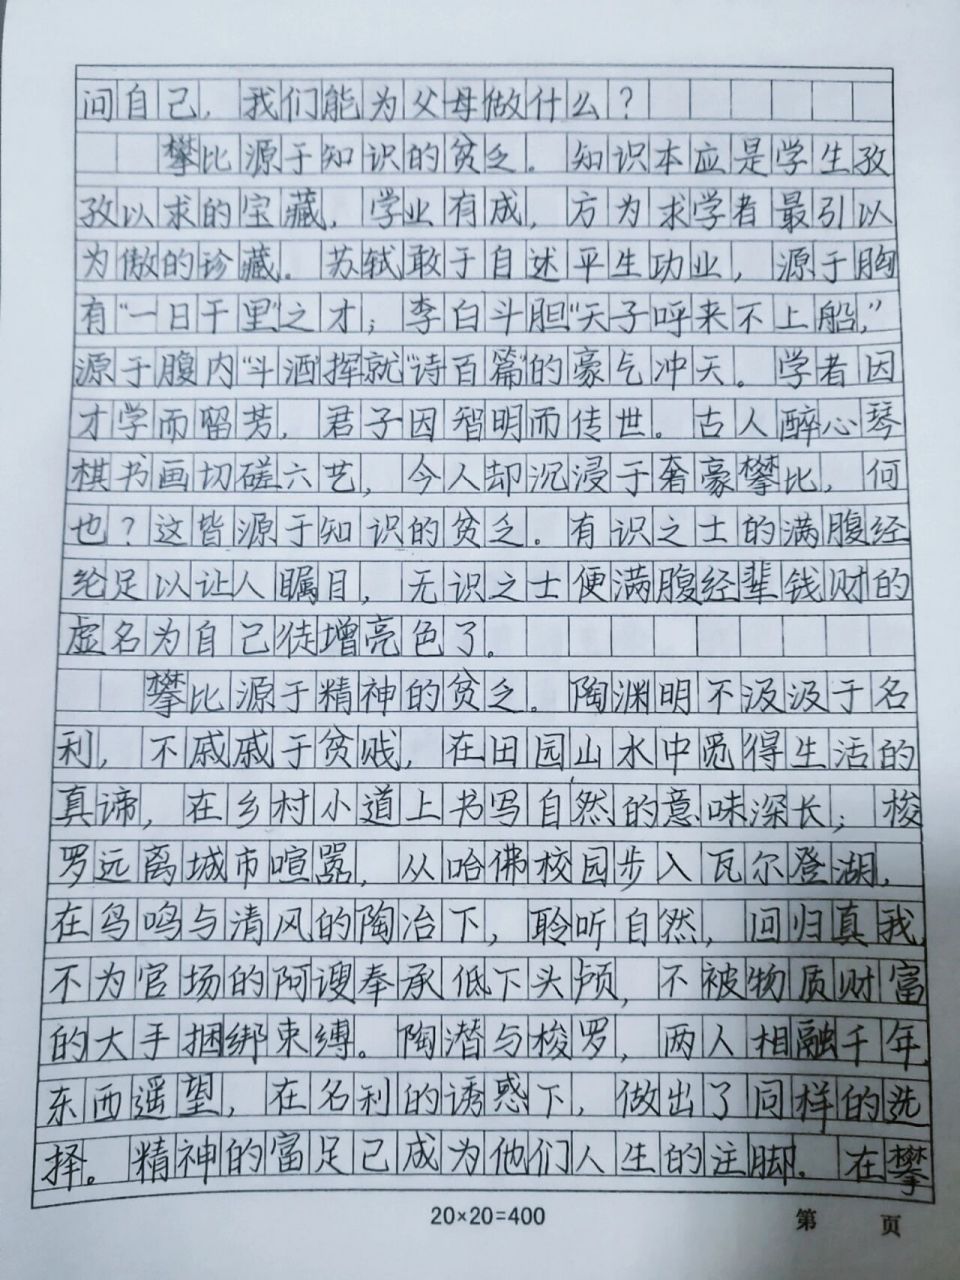 问自己，我们能为父母做什么？
攀比源于知识的贫乏。知识本应是学生孜
孜以求的宝藏，学业有成，方为求学者最引以
为傲的珍藏。苏轼敢于自述平生功业，源于胸
有“一日千里”之才；李白斗胆“天子呼来不上船，”
源于腹内“斗酒挥就”诗百篇”的豪气冲天。学者因
才学而留芳，君子因智明而传世。古人醉心琴
棋书画切磋六艺，今人却沉浸于奢豪攀比，何
也？这皆源于知识的贫乏。有识之士的满腹经
纶足以让人瞩目，无识之士便满腹经辈钱财的
虚名为自己徒增亮色了。
攀比源于精神的贫乏。陶渊明不汲汲于名
利，不戚戚于贫贱，在田园山水中觅得生活的
真谛，在乡村小道上书写自然的意味深长；梭
罗远离城市喧嚣，从哈佛校园步入瓦尔登湖，
在鸟鸣与清风的陶冶下，聆听自然，回归真我，
不为官场的阿谀奉承低下头颅，不被物质财富
的大手捆绑束缚。陶潜与梭罗，两人相融千年，
东西遥望，在名利的诱惑下，做出了同样的选
择。精神的富足已成为他们人生的注脚。在攀
20×20=400
第 页